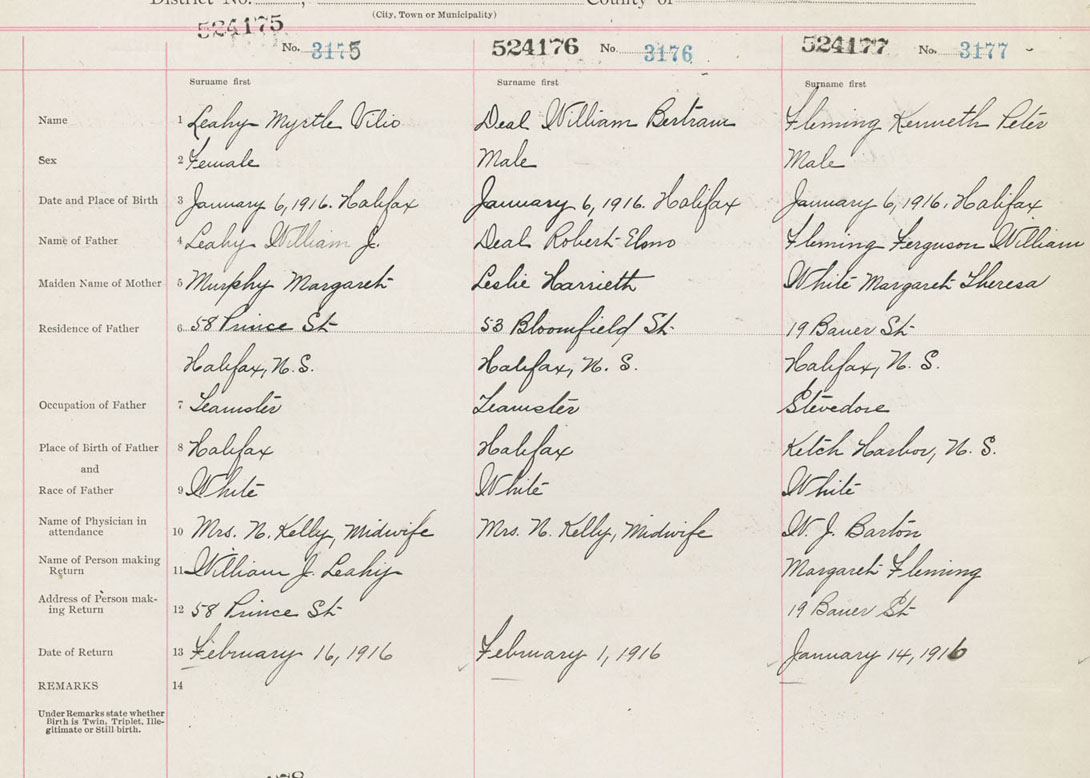 District No. , County of
(City, Town or Municipality)
524175 No. 3175
524176 No. 3176
524177 No. 3177
Surname first Surname first Surname first
Name 1 Leahy Myrtle Deal William Bertram Fleming Kenneth Peter
Sex 2 Female Male Male
Date and Place of Birth 3 January 6, 1916. Halifax January 6, 1916. Halifax January 6, 1916. Halifax
Name of Father 4 Leahy William J. Deal Robert Elmo Fleming Ferguson William
Maiden Name of Mother 5 Murphy Margaret Leslie Harrieth White Margaret Theresa
Residence of Father 6 58 Prince St 53 Bloomfield St. 19 Bauer St
Halifax, N. S. Halifax, N. S. Halifax, N. S.
Occupation of Father 7 Teamster Teamster Stevedore
Place of Birth of Father 8 Halifax Halifax Ketch Harbor, N. S.
and
Race of Father 9 White White White
Name of Physician in attendance 10 Mrs. N. Kelly, Midwife Mrs. N. Kelly, Midwife W. J. Barton
Name of Person making Return 11 William J. Leahy Margaret Fleming
Address of Person mak-ing Return 12 58 Prince St 19 Bauer St
Date of Return 13 February 16, 1916 February 1, 1916 January 14, 1916
REMARKS 14
Under Remarks state whether
Birth is Twin, Triplet, Ille-
gitimate or Still birth.